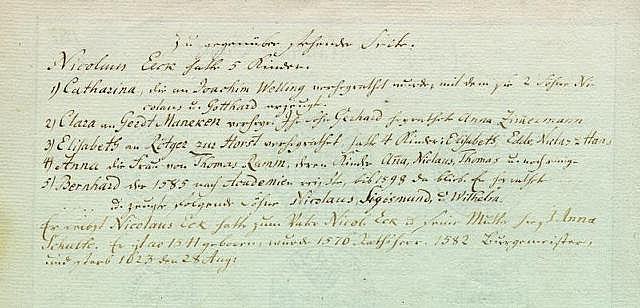 Zu gegenüber stehende Seite.
Nicolaus Eeck hatte 5 Kinder.
1) Catharina, die an Joachim Welling verheyrathet wurde, mit dem sie 2 Söhne Ni-
colaus u. Gotthard erzeugt.
2) Clara an Gerdt Muneken verheyr. Ihr Sohn Gerhard heyrathet Anna Zimmermann
3) Elisabeth an Rötger zur Horst verheyrathet hatte 4 Kinder: Elisabeth, Edde, Niclas u Hans
4) Anna die Frau von Thomas Ramm, deren Kinder Ana, Niclaus, Thomas u. noch
5) Bernhard der 1585 nach Academien reiste, bis 1598 da blieb. Er heyrathet
u. zeugte folgende Söhne Nicolaus, Sigismund, u. Wilhelm.
Er selbst Nicolaus Eck hatte zum Vater Nicol. Eck u seine Mutter hieß Anna
Schulte. Er ist ao 1541 geboren, wurde 1570 Rathsherr. 1582 Burgemeister,
und starb 1623 den 28 Aug: